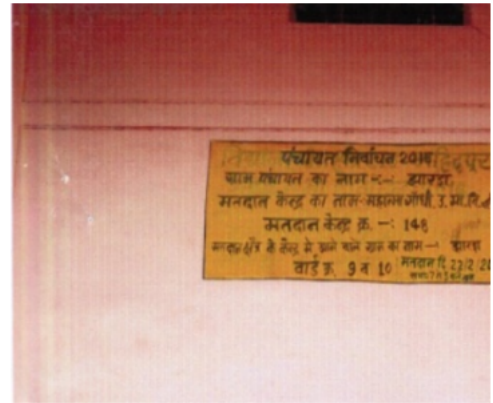 पंचायत निर्वाचन 2015
ग्राम पंचायत का नाम -:- झारड़ा
मतदान केन्द्र का नाम- महात्मा गांधी. उ. मा. वि.
मतदान केन्द्र क्र. -: 148
के केन्द्र में आने वाले ग्राम का नाम -: झारड़ा
वार्ड क्र. 9 व 10 मतदान दि. 22/2/